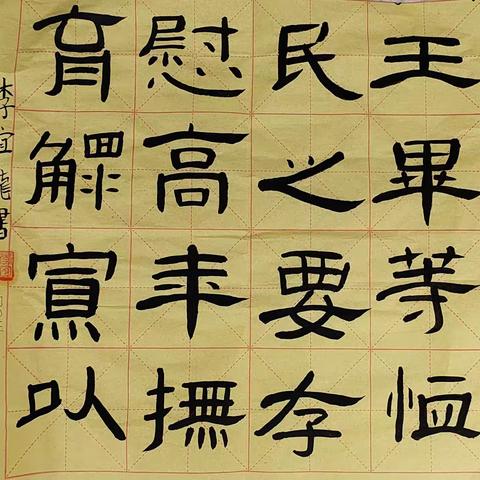 王畢等恤
民之要存
慰高年撫
育鰥寡以
李宜龍書